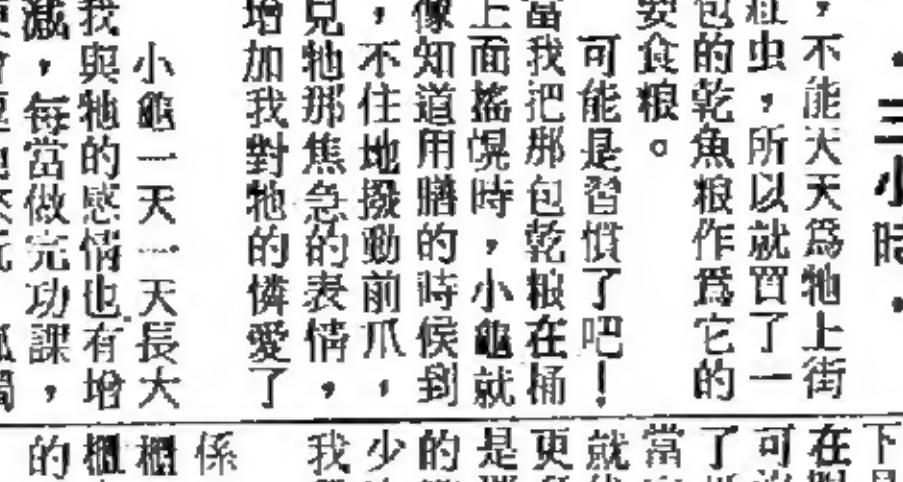 ・三小時，
，不能天天爲牠上街
虫，所以就買了一
包的乾魚粮作爲它的
食粮。
可能是習慣了吧！
當我把那包乾粮在桶
上面搖幌時，小龜就
像知道用膳的時候到
，不住地撥動前爪，
見牠那焦急的表情，
增加我對牠的憐愛了
小龜一天一天長大
我與牠的感情也有增
減，每當做完功課，
下
在
可
了
當
就
更
是
的
少
我
係
櫃
櫃
的